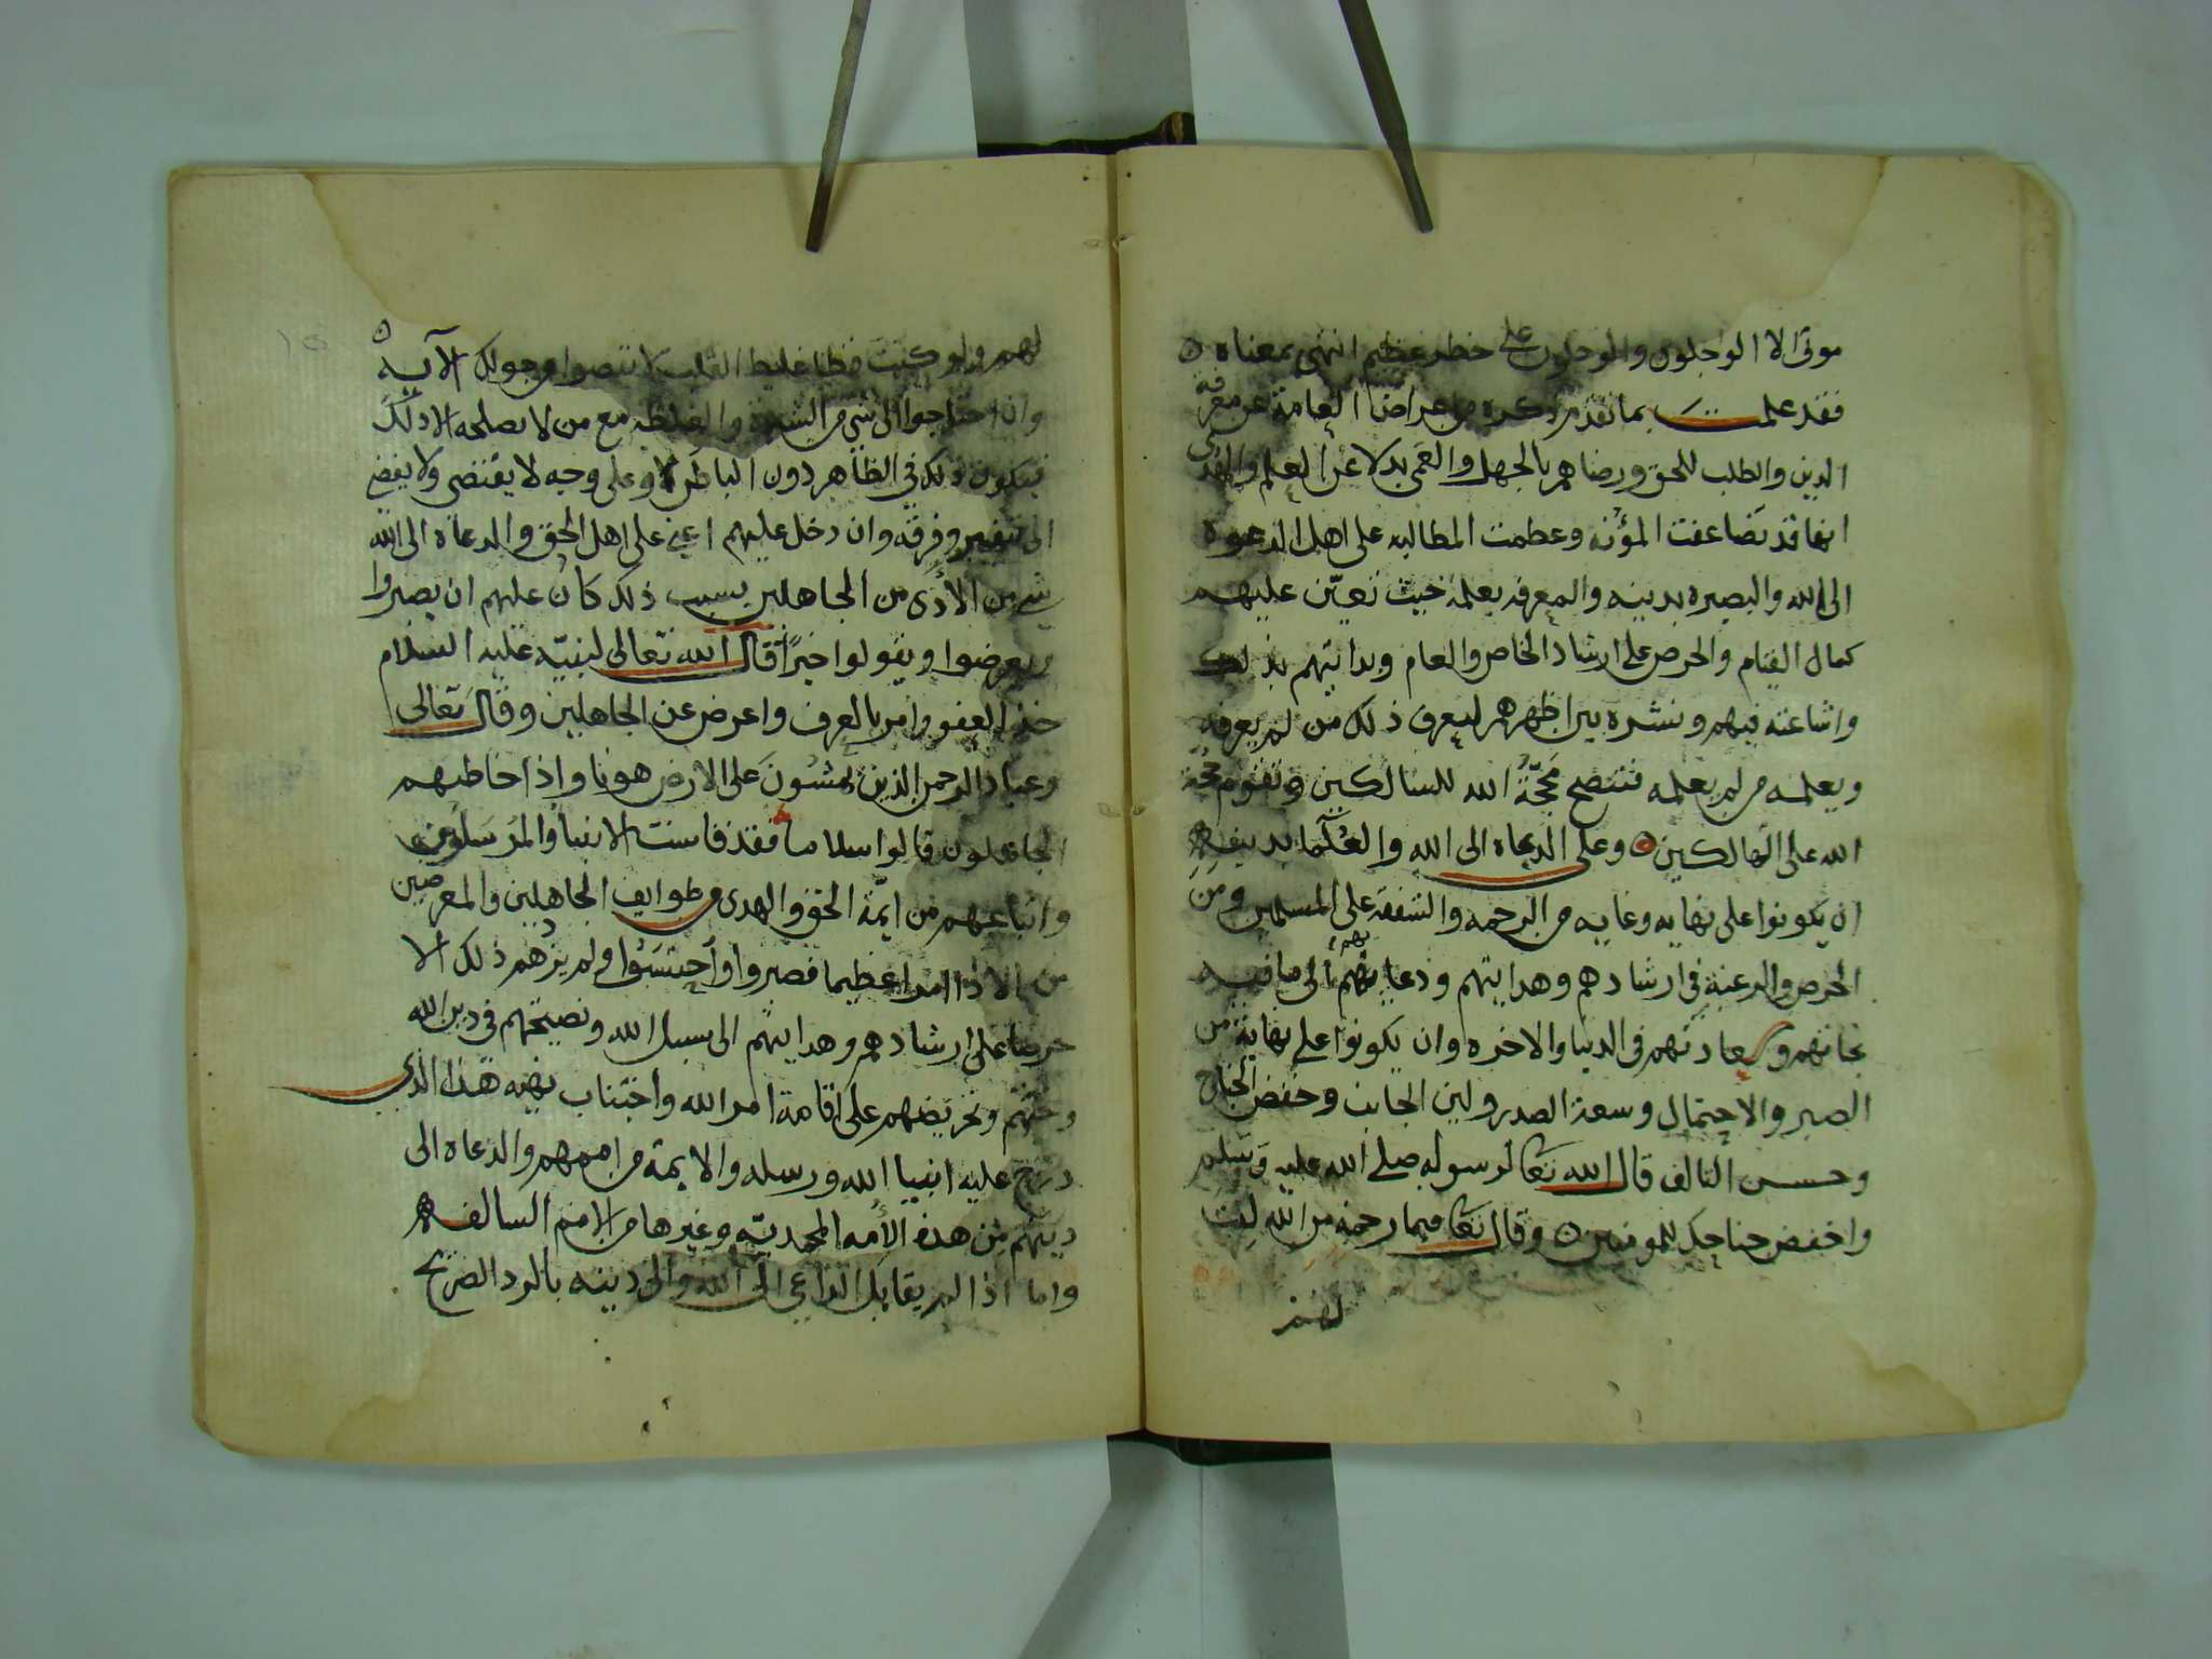 موتى الا الوجلون والوجلون على خطر عظيم انتهى بمعناه
فقد علمت بما تقدم ذكره من اعراض العامة عن معرفة
الدين والطلب للحق ورضاهم بالجهل والعمى بدلا عن العلم والهدى
انها قد تضاعفت المؤنه وعظمت المطالبه على اهل الدعوة
الى الله والبصيره بدينه والمعرفه بعلمه حيث تعيّن عليهم
كمال القيام والحرص على ارشاد الخاص والعام وبدايتهم بذلك
واشاعته فيهم ونشره بين اظهرهم ليعرف ذلك من لم يعرفه
ويعلمه من لم يعلمه فتتضح مَحَجّةُ الله للسالكين وتقوم حجة
الله على الهالكين وعلى الدعاه الى الله والعُلَما بدينه
ان يكونوا على نهايه وغايه من الرحمه والشفقة على المسلمين ومن
الحرص والرغبة في ارشادهم وهدايتهم ودعايتهم الى ما فيه
نجاتهم وسعادتهم في الدنيا والاخره وان يكونوا على نهاية من
الصبر والاحتمال وسعة الصدر ولين الجانب وخفض الجناح
وحسن التالف قال الله تعا لرسوله صلى الله عليه وسلم
واخفض جناحك للمومنين وقال تعا فبما رحمة من الله لنت
لهم
لهم ولو كنت فظا غليظ القلب لانفضوا من حولك الآيه
وان احتاجوا الى شي من الشده والغلظه مع من لا يصلحه الا ذلك
فيكون ذلك في الظاهر دون الباطن وعلى وجه لا يقتضي ولا يفضي
الى تنفير وفرقه وان دخل عليهم اعني على اهل الحق والدعاة الى الله
شي من الأذى من الجاهلين بسبب ذلك كان عليهم ان يصبروا
ويعرضوا ويقولوا خيرًا قال الله تعالى لنبيّه عليه السلام
خذ العفو وامر بالعرف واعرض عن الجاهلين وقال تعالى
وعباد الرحمن الذين يمشون على الارض هونا واذا خاطبهم
الجاهلون قالوا سلاما فقد قاست الانبيا والمرسلون
واتباعهم من ايمّة الحق والهدى من طوايف الجاهلين والمعرضين
من الاذا امرا عظيما فصبروا واحتسبوا ولم يزدهم ذلك الا
حرصا على ارشادهم وهدايتهم الى سبيل الله ونصيحتهم في دين الله
وحثهم وتحريضهم على اقامة امر الله واجتناب نهيه هذا الذي
درج عليه انبيا الله ورسله والايمة من اممهم والدعاه الى
دينهم من هذه الأمه المحمديّه وغيرها من الامم السالفه
واما اذا لم يقابل الداعي الى الله والى دينه بالرد الصريح